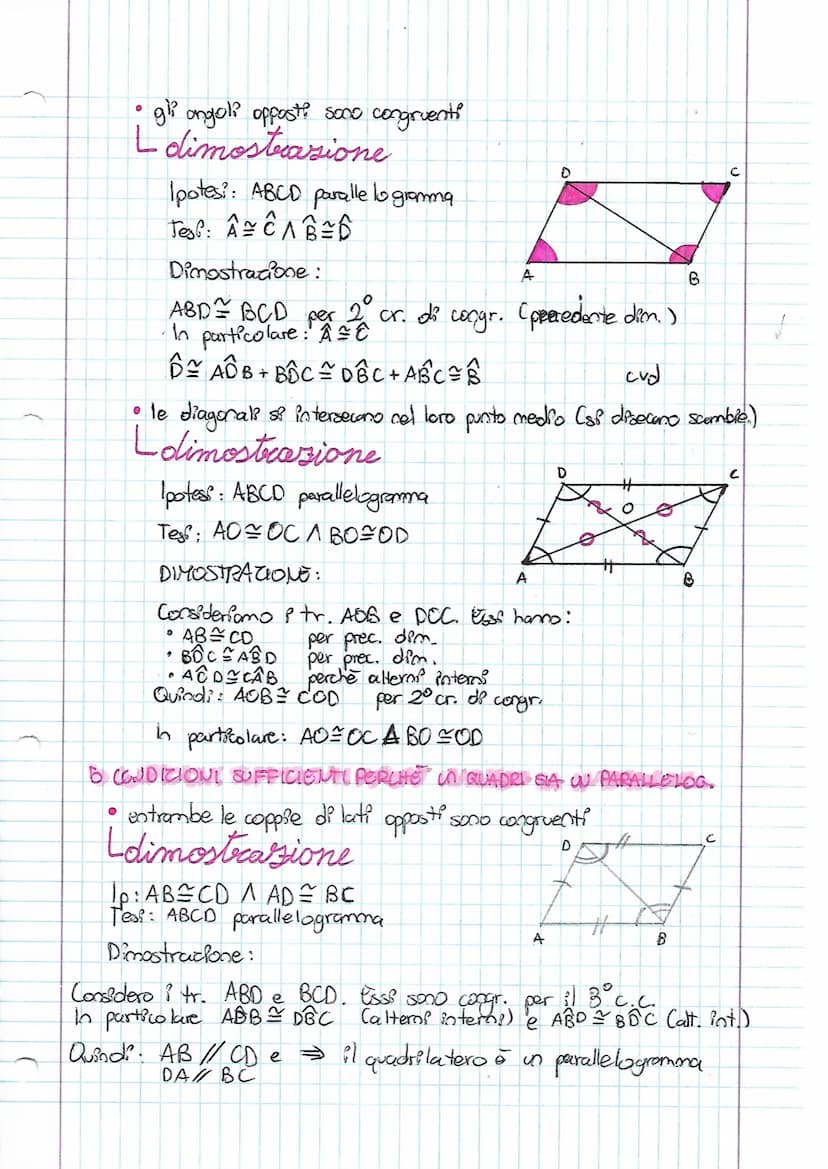 • gli angoli opposti sono congruenti
dimostrazione
D C
Ipotesi: ABCD parallelogramma
Tesi: Â ≅ Ĉ ∧ B̂ ≅ D̂
A B
Dimostrazione:
ABD ≅ BCD per 2° cr. di congr. (precedente dim.)
In particolare: Â ≅ Ĉ
D̂ ≅ AD̂B + BD̂C ≅ DB̂C + AB̂C ≅ B̂ cvd
• le diagonali si intersecano nel loro punto medio (si disecano scambie.)
dimostrazione
D C
Ipotesi: ABCD parallelogramma
O
Tesi: AO ≅ OC ∧ BO ≅ OD
DIMOSTRAZIONE:
A B
Consideriamo i tr. AOB e DCC. Essi hanno:
• AB ≅ CD per prec. dim.
• BD̂C ≅ AB̂D per prec. dim.
• AĈD ≅ CÂB perchè alterni interni
Quindi: AOB ≅ COD per 2° cr. di congr.
In particolare: AO ≅ OC ∧ BO ≅ OD
5 CONDIZIONI SUFFICIENTI PERCHÈ UN QUADRI SIA UN PARALLELOG.
• entrambe le coppie di lati opposti sono congruenti
dimostrazione
D C
Ip: AB ≅ CD ∧ AD ≅ BC
Tesi: ABCD parallelogramma
A B
Dimostrazione:
Considero i tr. ABD e BCD. Essi sono congr. per il 3° c.c.
In particolare AD̂B ≅ DB̂C (alterni interni) e AB̂D ≅ BD̂C (alt. int.)
Quindi: AB // CD e ⇒ il quadrilatero è un parallelogramma
DA // BC